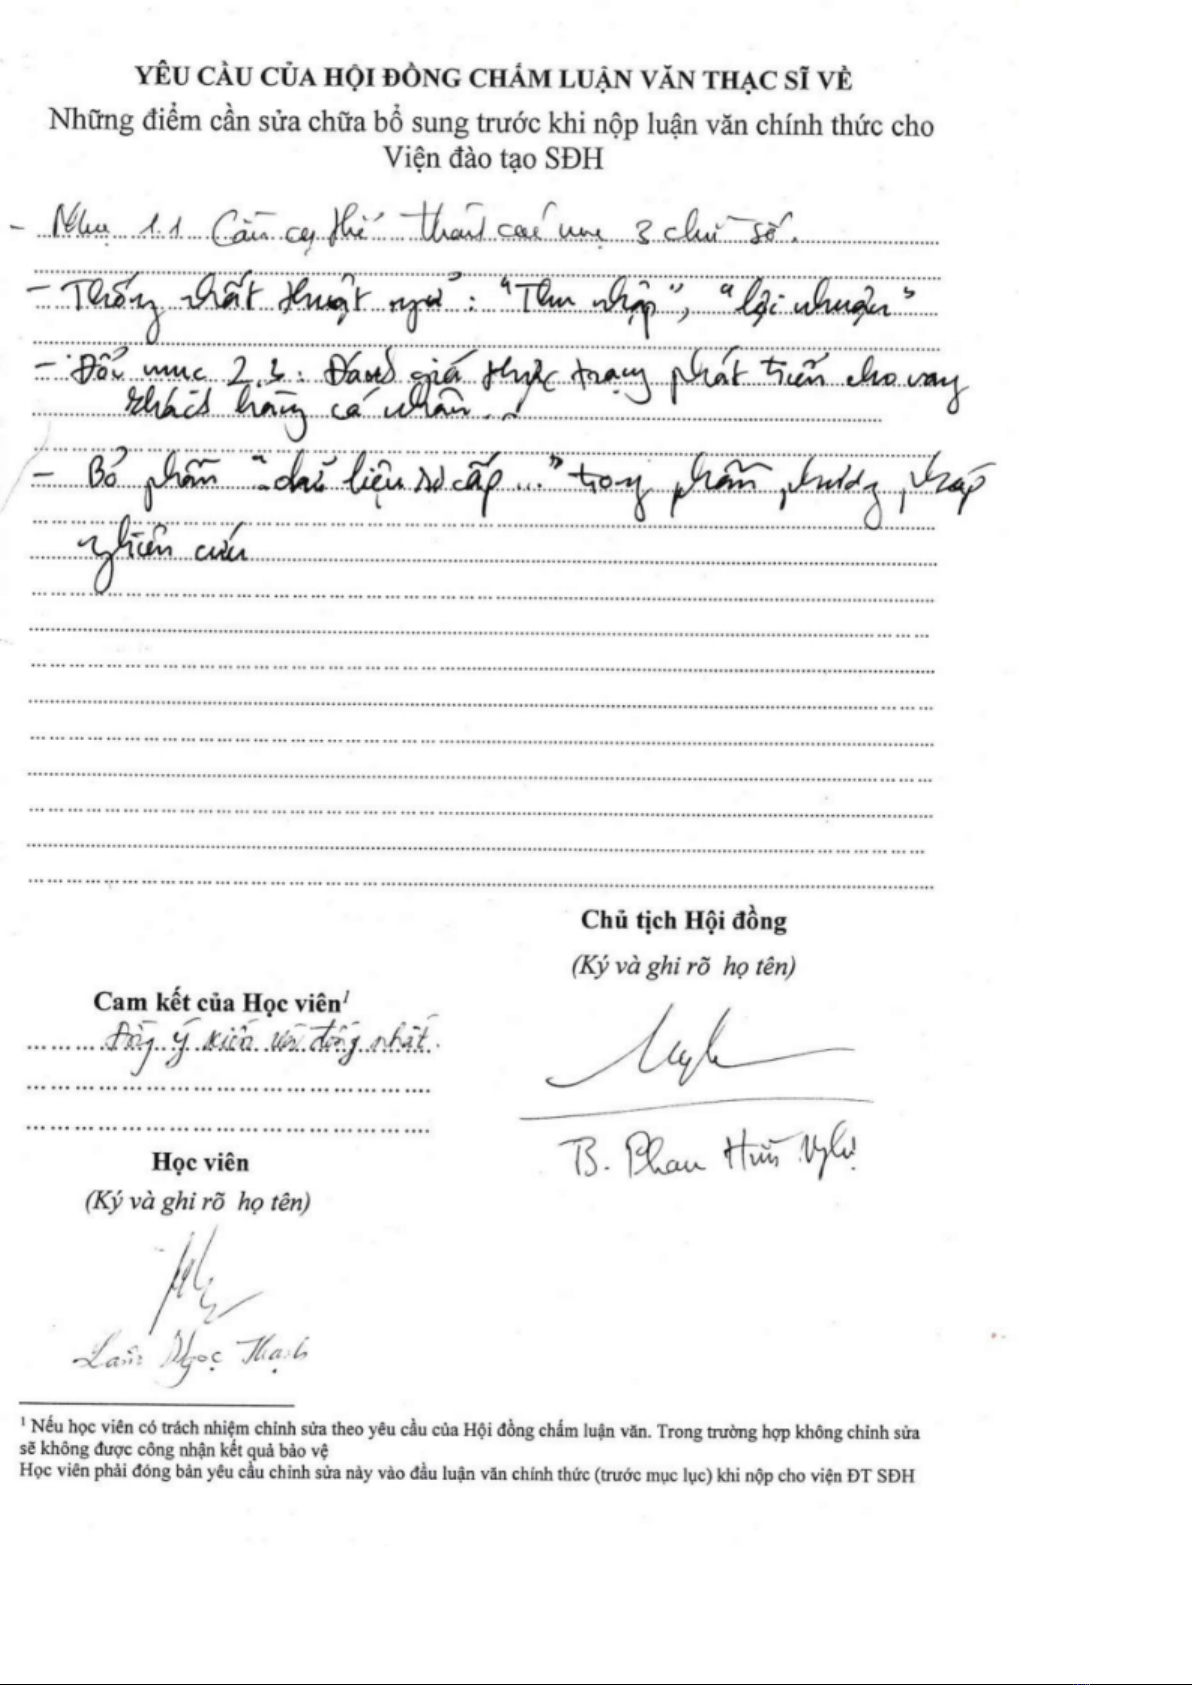 YÊU CẦU CỦA HỘI ĐỒNG CHẤM LUẬN VĂN THẠC SĨ VỀ
Những điểm cần sửa chữa bổ sung trước khi nộp luận văn chính thức cho
Viện đào tạo SĐH
- 1.1 Cần cụ thể thành các mục 3 chữ số.
- Thống nhất thuật ngữ: "Thu nhập", "lợi nhuận"
- Đổi mục 2.3: Đánh giá thực trạng phát triển cho vay
khách hàng cá nhân...
- Bỏ phần "dữ liệu sơ cấp..." trong phần phương pháp
nghiên cứu
Chủ tịch Hội đồng
(Ký và ghi rõ họ tên)
Cam kết của Học viên¹
Đồng ý kiến với thống nhất.
B. Phan Hữu Nghị
Học viên
(Ký và ghi rõ họ tên)
Lâm Ngọc Thạch
¹ Nếu học viên có trách nhiệm chỉnh sửa theo yêu cầu của Hội đồng chấm luận văn. Trong trường hợp không chỉnh sửa
sẽ không được công nhận kết quả bảo vệ
Học viên phải đóng bản yêu cầu chỉnh sửa này vào đầu luận văn chính thức (trước mục lục) khi nộp cho viện ĐT SĐH